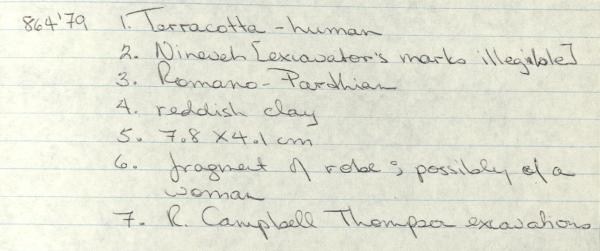 864'79 1. Terracotta - human
2. Nineveh [excavator's marks illegible]
3. Romano-Parthian
4. reddish clay
5. 7.8 x 4.1 cm
6. fragment of robe; possibly of a
woman
7. R. Campbell Thompson excavations